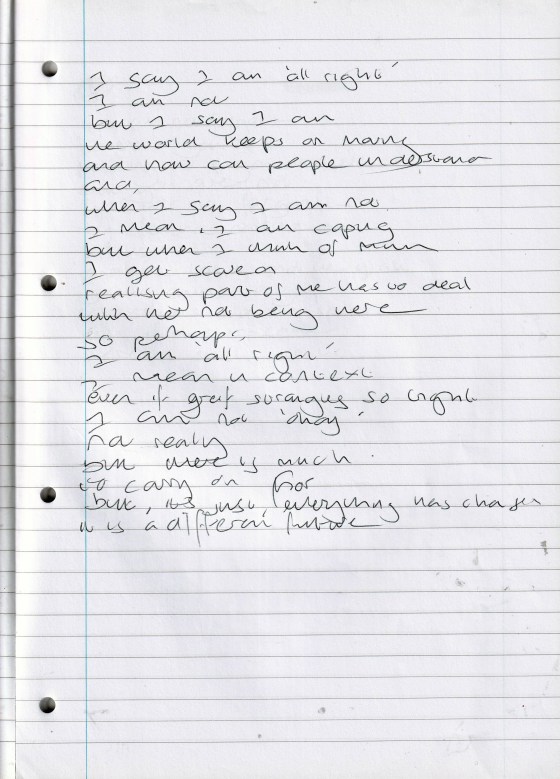 I say I am 'all right'
I am not
but I say I am
the world keeps on moving
and how can people understand
and,
when I say I am not
I mean, I am coping
but when I think of mum
I get scared
realising part of me has to deal
with her not being here
so perhaps,
I am 'all right'
I mean in context
even if grief strangles so tight
I am not 'okay'
not really
but there is much
to carry on for
but, its just, everything has changed
it is a different future